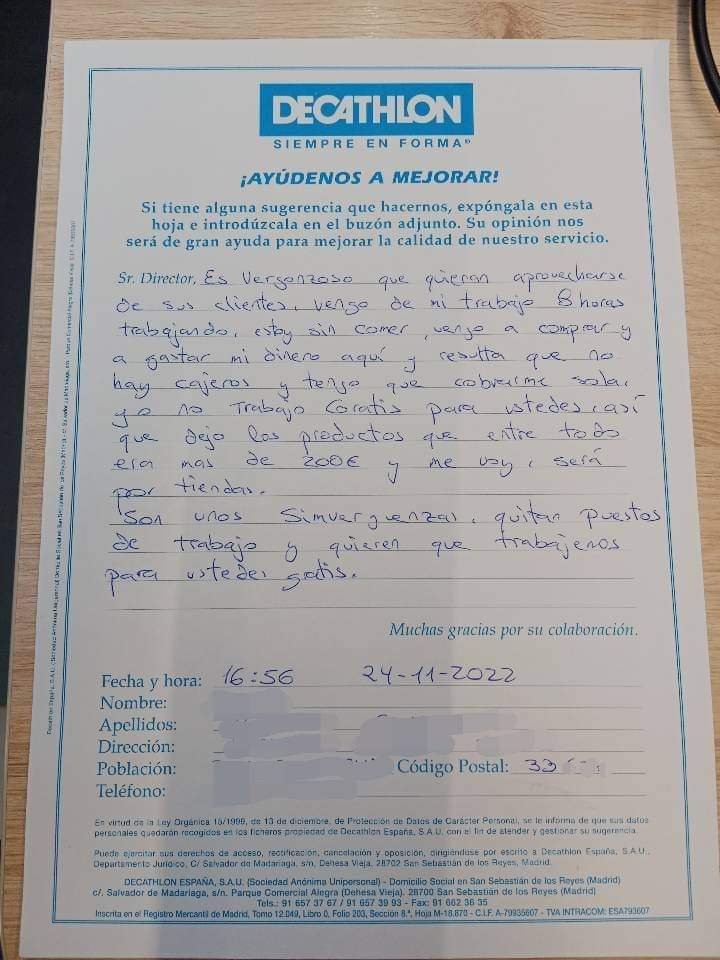 DECATHLON
SIEMPRE EN FORMA®
¡AYÚDENOS A MEJORAR!
Si tiene alguna sugerencia que hacernos, expóngala en esta
hoja e introdúzcala en el buzón adjunto. Su opinión nos
será de gran ayuda para mejorar la calidad de nuestro servicio.
Sr. Director, Es vergonzoso que quieran aprovecharse
de sus clientes, vengo de mi trabajo 8 horas
trabajando, estoy sin comer, vengo a comprar y
a gastar mi dinero aquí y resulta que no
hay cajeros y tengo que cobrarme sola,
yo no Trabajo Gratis para ustedes, así
que dejo los productos que entre todo
era mas de 200€ y me voy, será
por tiendas.
Son unos Sinverguenzas, quitan puestos
de trabajo y quieren que trabajemos
para ustedes gratis.
Muchas gracias por su colaboración.
Fecha y hora: 16:56 24-11-2022
Nombre:
Apellidos:
Dirección:
Población: Código Postal: 33
Teléfono:
En virtud de la Ley Orgánica 15/1999, de 13 de diciembre, de Protección de Datos de Carácter Personal, se le informa de que sus datos
personales quedarán recogidos en los ficheros propiedad de Decathlon España, S.A.U. con el fin de atender y gestionar su sugerencia.
Puede ejercitar sus derechos de acceso, rectificación, cancelación y oposición, dirigiéndose por escrito a Decathlon España, S.A.U.,
Departamento Jurídico, C/ Salvador de Madariaga, s/n, Dehesa Vieja, 28702 San Sebastián de los Reyes, Madrid.
DECATHLON ESPAÑA, S.A.U. (Sociedad Anónima Unipersonal) - Domicilio Social en San Sebastián de los Reyes (Madrid)
c/. Salvador de Madariaga, s/n. Parque Comercial Alegra (Dehesa Vieja). 28700 San Sebastián de los Reyes (Madrid)
Tels.: 91 657 37 67 / 91 657 39 93 - Fax: 91 662 36 35
Inscrita en el Registro Mercantil de Madrid, Tomo 12.049, Libro 0, Folio 203, Sección 8.ª, Hoja M-18.870 - C.I.F. A-79935607 - TVA INTRACOM: ESA793607